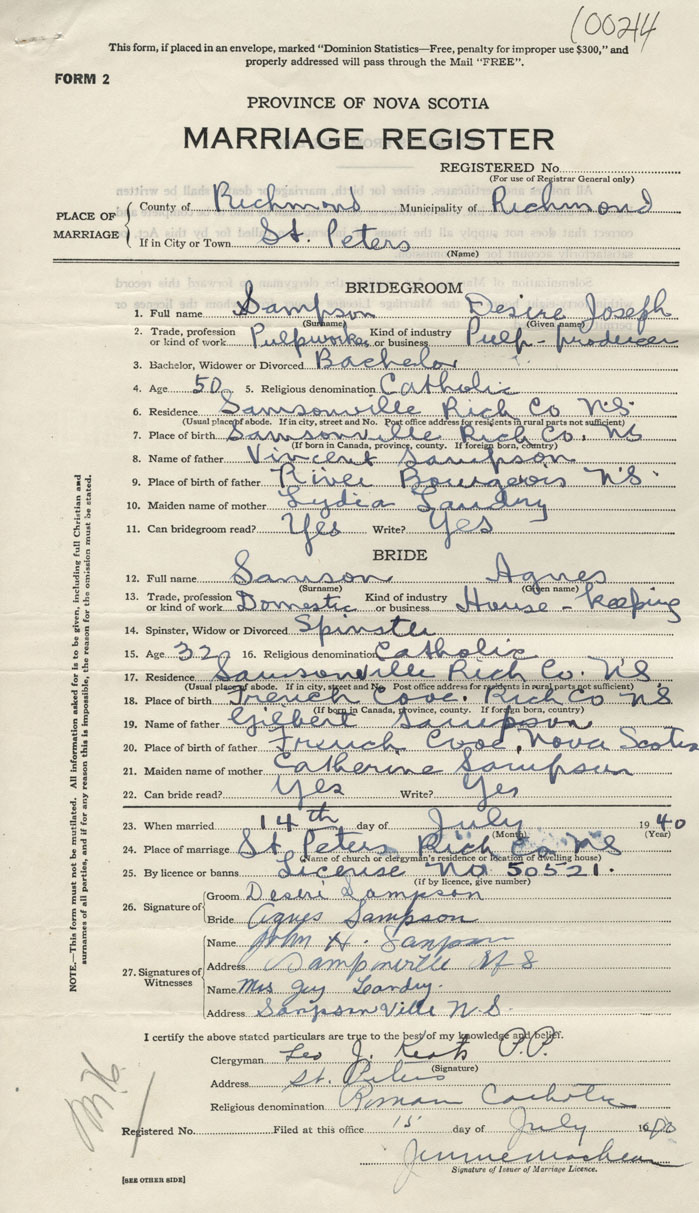 (00214
This form, if placed in an envelope, marked "Dominion Statistics—Free, penalty for improper use $300," and
properly addressed will pass through the Mail "FREE".
FORM 2
PROVINCE OF NOVA SCOTIA
MARRIAGE REGISTER
REGISTERED No.
(For use of Registrar General only)
PLACE OF MARRIAGE
County of Richmond Municipality of Richmond
If in City or Town St. Peters
(Name)
BRIDEGROOM
1. Full name Sampson Desire Joseph
(Surname) (Given name)
2. Trade, profession or kind of work Pulpworker Kind of industry or business Pulp-producer
3. Bachelor, Widower or Divorced Bachelor
4. Age 50 5. Religious denomination Catholic
6. Residence Samsonville Rich Co N.S.
(Usual place of abode. If in city, street and No. Post office address for residents in rural parts not sufficient)
7. Place of birth Samsonville Rich Co. NS
(If born in Canada, province, county. If foreign born, country)
8. Name of father Vincent Sampson
9. Place of birth of father River Bourgeois N.S.
10. Maiden name of mother Lydia Landry
11. Can bridegroom read? Yes Write? Yes
BRIDE
12. Full name Samson Agnes
(Surname) (Given name)
13. Trade, profession or kind of work Domestic Kind of industry or business House-keeping
14. Spinster, Widow or Divorced Spinster
15. Age 32 16. Religious denomination Catholic
17. Residence Samsonville Rich Co. N.S
(Usual place of abode. If in city, street and No Post office address for residents in rural parts not sufficient)
18. Place of birth French Cove. Rich Co NS
(If born in Canada, province, county. If foreign born, country)
19. Name of father Gilbert Sampson
20. Place of birth of father French Cove, Nova Scotia
21. Maiden name of mother Catherine Sampson
22. Can bride read? Yes Write? Yes
23. When married 14th day of July 1940
(Month) (Year)
24. Place of marriage St Peters Rich Co NS
(Name of church or clergyman's residence or location of dwelling house)
25. By licence or banns License No 50521.
(If by licence, give number)
26. Signature of
Groom Deseri Sampson
Bride Agnes Sampson
27. Signatures of Witnesses
Name John H. Sampson
Address Sampsonville N S
Name Mrs Guy Landry.
Address Sampson Ville N.S.
I certify the above stated particulars are true to the best of my knowledge and belief.
Clergyman Leo J. Keats P.P.
(Signature)
Address St. Peters
Religious denomination Roman Catholic
Registered No. Filed at this office 15 day of July 1940
Signature of Issuer of Marriage Licence.
[SEE OTHER SIDE]
NOTE.—This form must not be mutilated. All information asked for is to be given, including full Christian and
surnames of all parties, and if for any reason this is impossible, the reason for the omission must be stated.